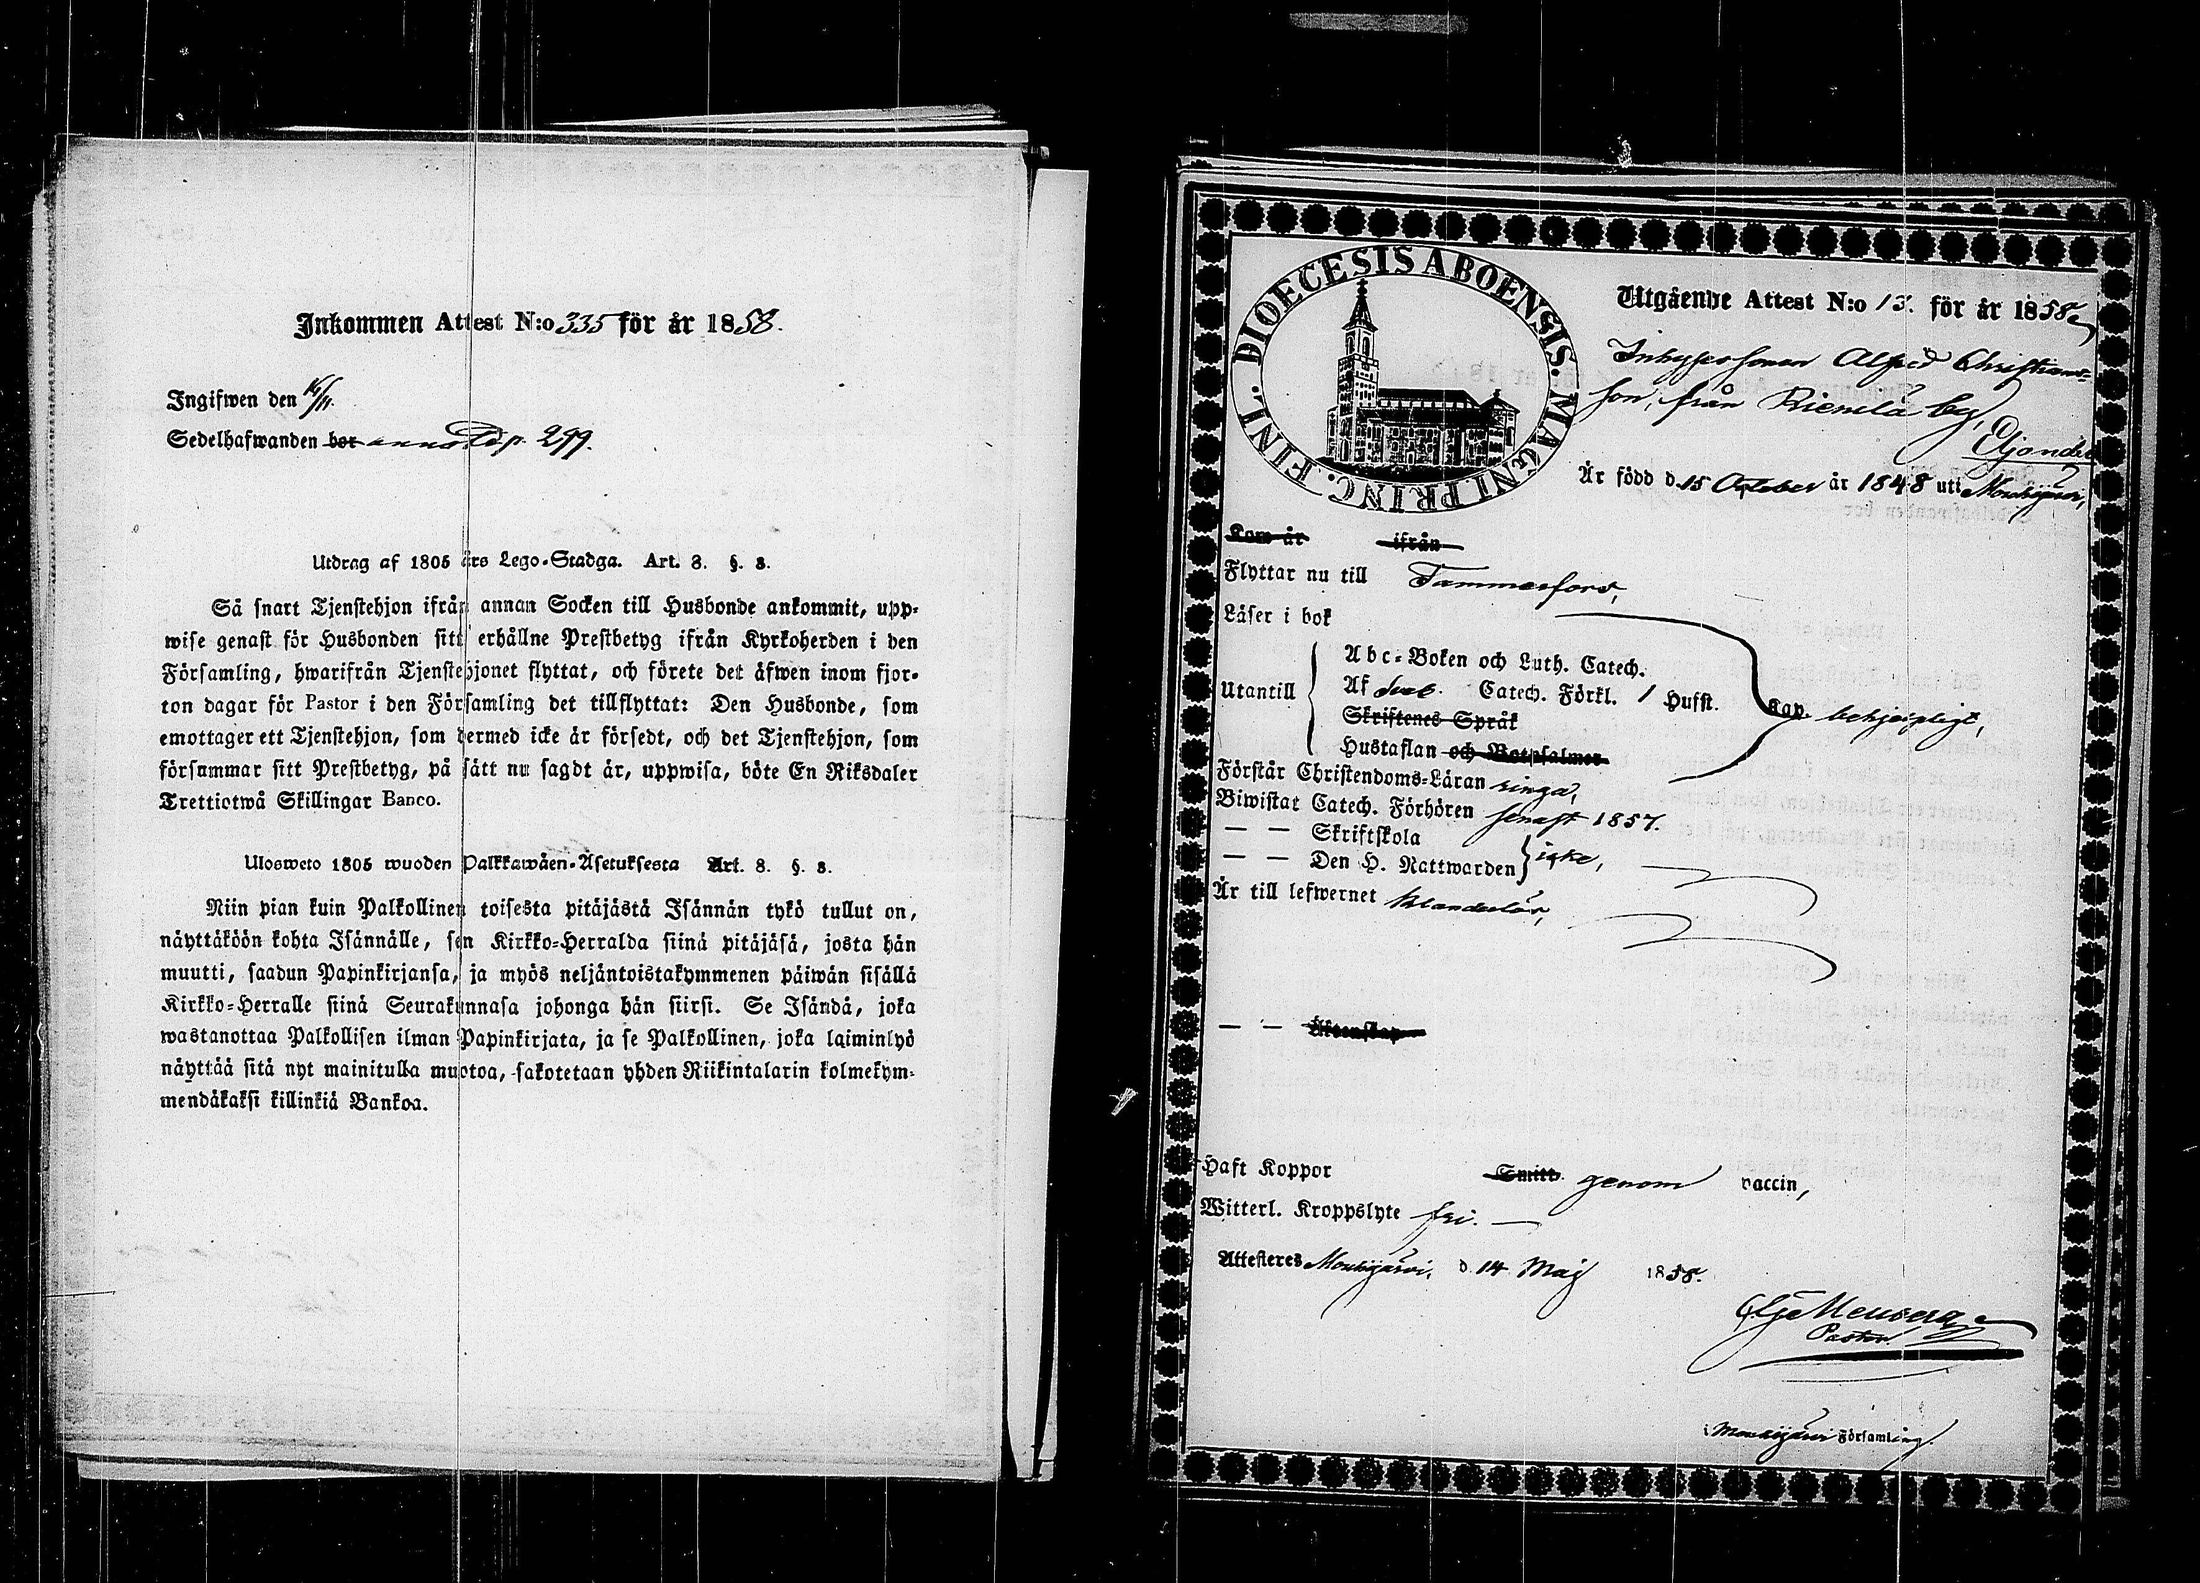 Inkommen Attest N:o 335 för år 1858.
Ingifwen den 16/11.
Sedelhafwanden bor p. 299.
Utdrag af 1805 års Lego-Stadga. Art. 8. §. 3.
Så snart Tjenstehjon ifrån annan Socken till Husbonde ankommit, upp-
wise genast för Husbonden sitt erhållne Prestbetyg ifrån Kyrkoherden i den
Församling, hwarifrån Tjenstehjonet flyttat, och förete det äfwen inom fjor-
ton dagar för Pastor i den Församling det tillflyttat: Den Husbonde, som
emottager ett Tjenstehjon, som dermed icke är försedt, och det Tjenstehjon, som
försummar sitt Prestbetyg, på sätt nu sagdt är, uppwisa, böte En Riksdaler
Trettiotwå Skillingar Banco.
Ulosweto 1805 wuoden Palkkawäen-Asetuksesta Art. 8. §. 3.
Niin pian kuin Palkollinen toisesta pitäjästä Isännän tykö tullut on,
näyttäköön kohta Isännälle, sen Kirkko-Herralda siinä pitäjäsä, josta hän
muutti, saadun Papinkirjansa, ja myös neljäntoistakymmenen päiwän sisällä
Kirkko-Herralle siinä Seurakunnasa johonga hän siirsi. Se Isändä, joka
wastanottaa Palkollisen ilman Papinkirjata, ja se Palkollinen, joka laiminlyö
näyttää sitä nyt mainitulla muotoa, sakotetaan yhden Riikintalarin kolmekym-
mendäkaksi killinkiä Bankoa.
DIOECESIS ABOENSIS. MAGNI PRINC. FINL.
Utgående Attest N:o 13. för år 1858
Inhyses sonen Alfred Christians-
son, från by,
Är född d. 15 October år 1848 uti Mouhijärvi,
Kom år ifrån
Flyttar nu till Tammerfors,
Läser i bok
Utantill
Abc-Boken och Luth. Catech.
Af Sveb. Catech. Förkl. 1 Hufst. Kap. behjelpligt,
Skriftenes Språk
Hustaflan och Botpsalmer
Förstår Christendoms-Läran ringa,
Biwistat Catech. Förhören senast 1857.
— — Skriftskola
— — Den H. Nattwarden icke,
Är till lefwernet klanderlös,
— — Äktenskap
Haft Koppor Smitt. genom vaccin,
Witterl. Kroppslyte fri.
Attesteres Mouhijärvi, d. 14 Maj 1858.
Pastor
i Mouhijärvi Församling.